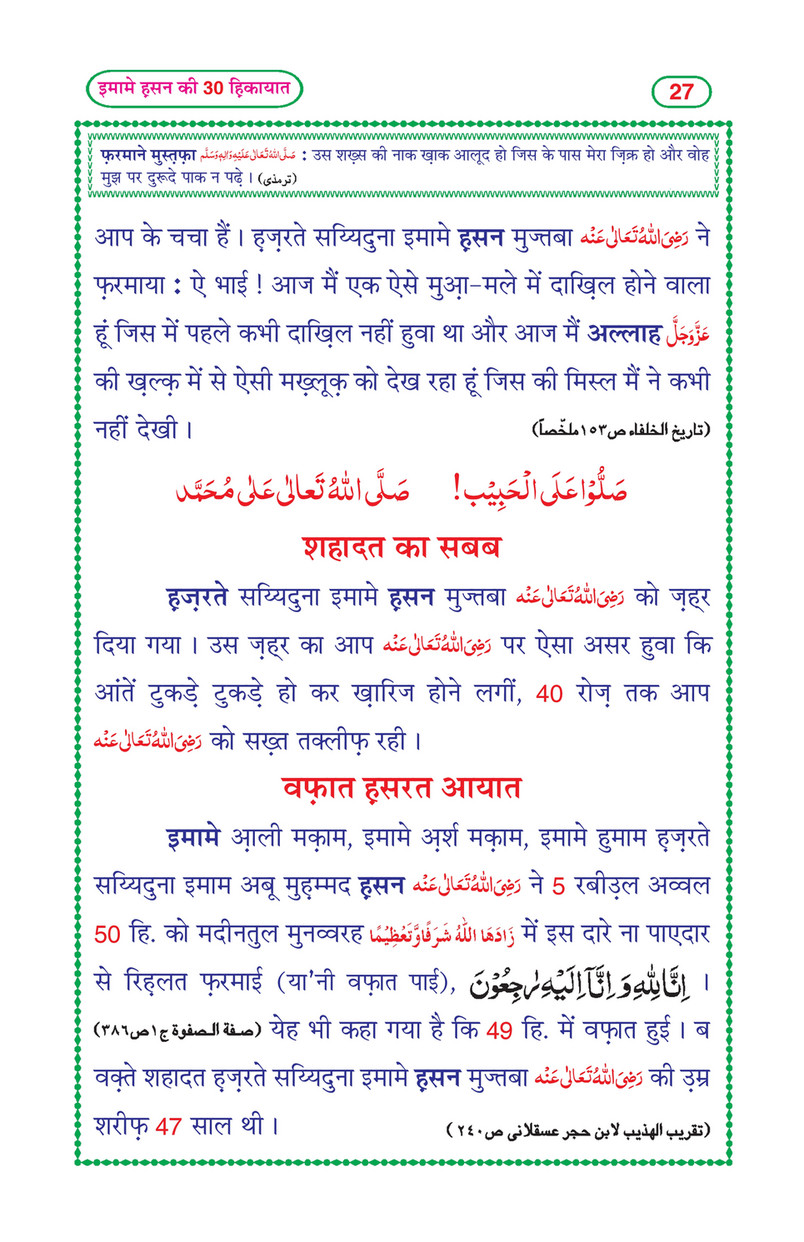 इमामे ह़सन की 30 ह़िकायात
27
फ़रमाने मुस्त़फ़ा صَلَّى اللهُ تَعَالٰى عَلَيْهِ وَاٰلِهٖ وَسَلَّم : उस शख़्स की नाक ख़ाक आलूद हो जिस के पास मेरा ज़िक्र हो और वोह
मुझ पर दुरूदे पाक न पढ़े । (ترمذی)
आप के चचा हैं । ह़ज़रते सय्यिदुना इमामे ह़सन मुज्तबा رَضِیَ اللهُ تَعَالٰی عَنْه ने
फ़रमाया : ऐ भाई ! आज मैं एक ऐसे मुआ़-मले में दाख़िल होने वाला
हूं जिस में पहले कभी दाख़िल नहीं हुवा था और आज मैं अल्लाह عَزَّوَجَلَّ
की ख़ल्क़ में से ऐसी मख़्लूक़ को देख रहा हूं जिस की मिस्ल मैं ने कभी
नहीं देखी । (تاریخ الخلفاء ص۱۵۳ملخّصاً)
صَلُّوْا عَلَى الْحَبِیْب! صَلَّى اللهُ تَعَالٰى عَلٰى مُحَمَّد
शहादत का सबब
ह़ज़रते सय्यिदुना इमामे ह़सन मुज्तबा رَضِیَ اللهُ تَعَالٰی عَنْه को ज़ह्र
दिया गया । उस ज़ह्र का आप رَضِیَ اللهُ تَعَالٰی عَنْه पर ऐसा असर हुवा कि
आंतें टुकड़े टुकड़े हो कर ख़ारिज होने लगीं, 40 रोज़ तक आप
رَضِیَ اللهُ تَعَالٰی عَنْه को सख़्त तक्लीफ़ रही ।
वफ़ात ह़सरत आयात
इमामे आ़ली मक़ाम, इमामे अ़र्श मक़ाम, इमामे हुमाम ह़ज़रते
सय्यिदुना इमाम अबू मुह़म्मद ह़सन رَضِیَ اللهُ تَعَالٰی عَنْه ने 5 रबीउ़ल अव्वल
50 हि. को मदीनतुल मुनव्वरह زَادَهَا اللهُ شَرَفًاوَّتَعْظِیْمًا में इस दारे ना पाएदार
से रिह़लत फ़रमाई (या'नी वफ़ात पाई), اِنَّا لِلّٰهِ وَ اِنَّاۤ اِلَیْهِ رٰجِعُوْنَ ।
(صفة الصفوة ج۱ص۳۸۶) येह भी कहा गया है कि 49 हि. में वफ़ात हुई । ब
वक़्ते शहादत ह़ज़रते सय्यिदुना इमामे ह़सन मुज्तबा رَضِیَ اللهُ تَعَالٰی عَنْه की उ़म्र
शरीफ़ 47 साल थी । (تقریب الہذیب لابن حجر عسقلانی ص۲٤۰)